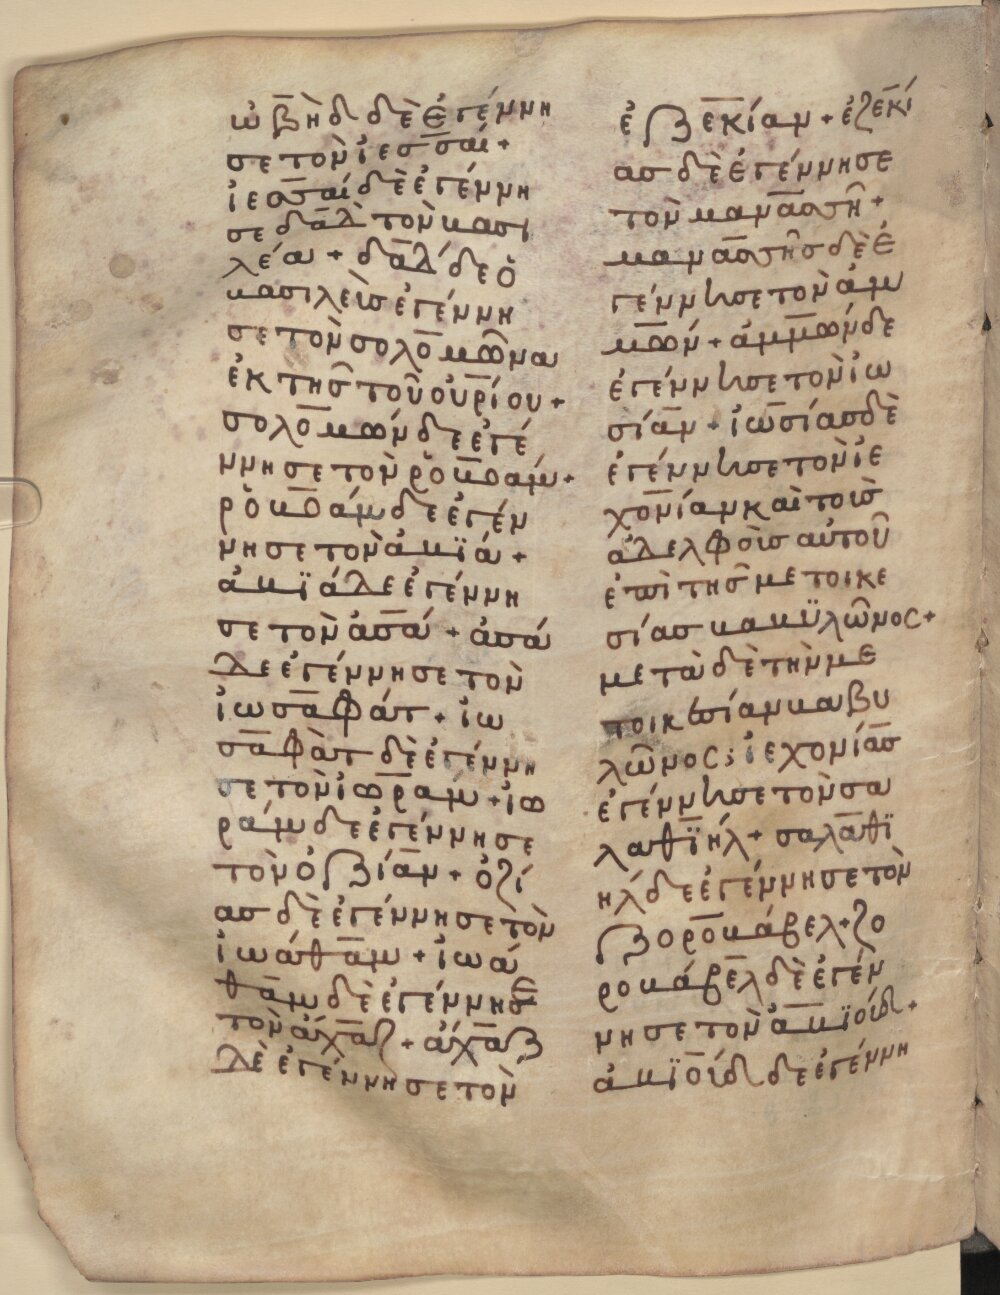 ὠβὴδ δὲ ἐγέννη
σε τὸν ἰεσσαί +
ἰεσσαί δὲ ἐγέννη
σε δαδ τὸν βασι
λέα + δαδ δε ὁ
βασιλεὶσ ἐγέννη
σε τὸν σολομῶνα
ἐκ τησ τοῦ οὐρίου +
σολομών δε ἐγέ
ννησε τὸν ῥὸβοαμ +
ῥὸβοάμ δε ἐγέν
νησε τὸν ἀβϊά +
ἀβϊά δε ἐγέννη
σε τὸν ἀσά + ἀσά
δε ἐγέννησε τὸν
ἰωσαφάτ + ἰω
σαφὰτ δὲ ἐγέννη
σε τὸν ἰωραμ + ἰω
ράμ δε ἐγέννησε
τὸν ὀζίαν + ὀζί
ασ δὲ ἐγέννησε τὸν
ἰωάθαμ + ἰωά
θαμ δὲ ἐγέννησε
τὸν ἀχαζ + ἀχαζ
δὲ ἐγέννησε τὸν
ἐζεκίαν + ἐζεκί
ασ δὲ ἐγέννησε
τὸν μανασσῆ +
μανασσῆσ δὲ ἐ
γέννησε τὸν ἀμ
μών + ἀμμών δε
ἐγέννησε τὸν ἰω
σίαν + ἰωσίασ δὲ
ἐγέννησε τὸν ἰε
χονίαν καὶ τοισ
ἀδελφοὶσ αὐτοῦ
ἐπὶ τησ μετοικε
σίασ βαβϋλῶνος +
μετὰ δὲ τὴν με
τοικεσίαν βαβυ
λῶνος; ἰεχονίασ
ἐγέννησε τὸν σα
λαθϊήλ + σαλαθϊ
ηλ δε ἐγέννησε τὸν
ζοροβάβελ + ζο
ροβάβελ δὲ ἐγέν
νησε τὸν ἀβϊούδ +
ἀβϊοὺδ δε ἐγέννη